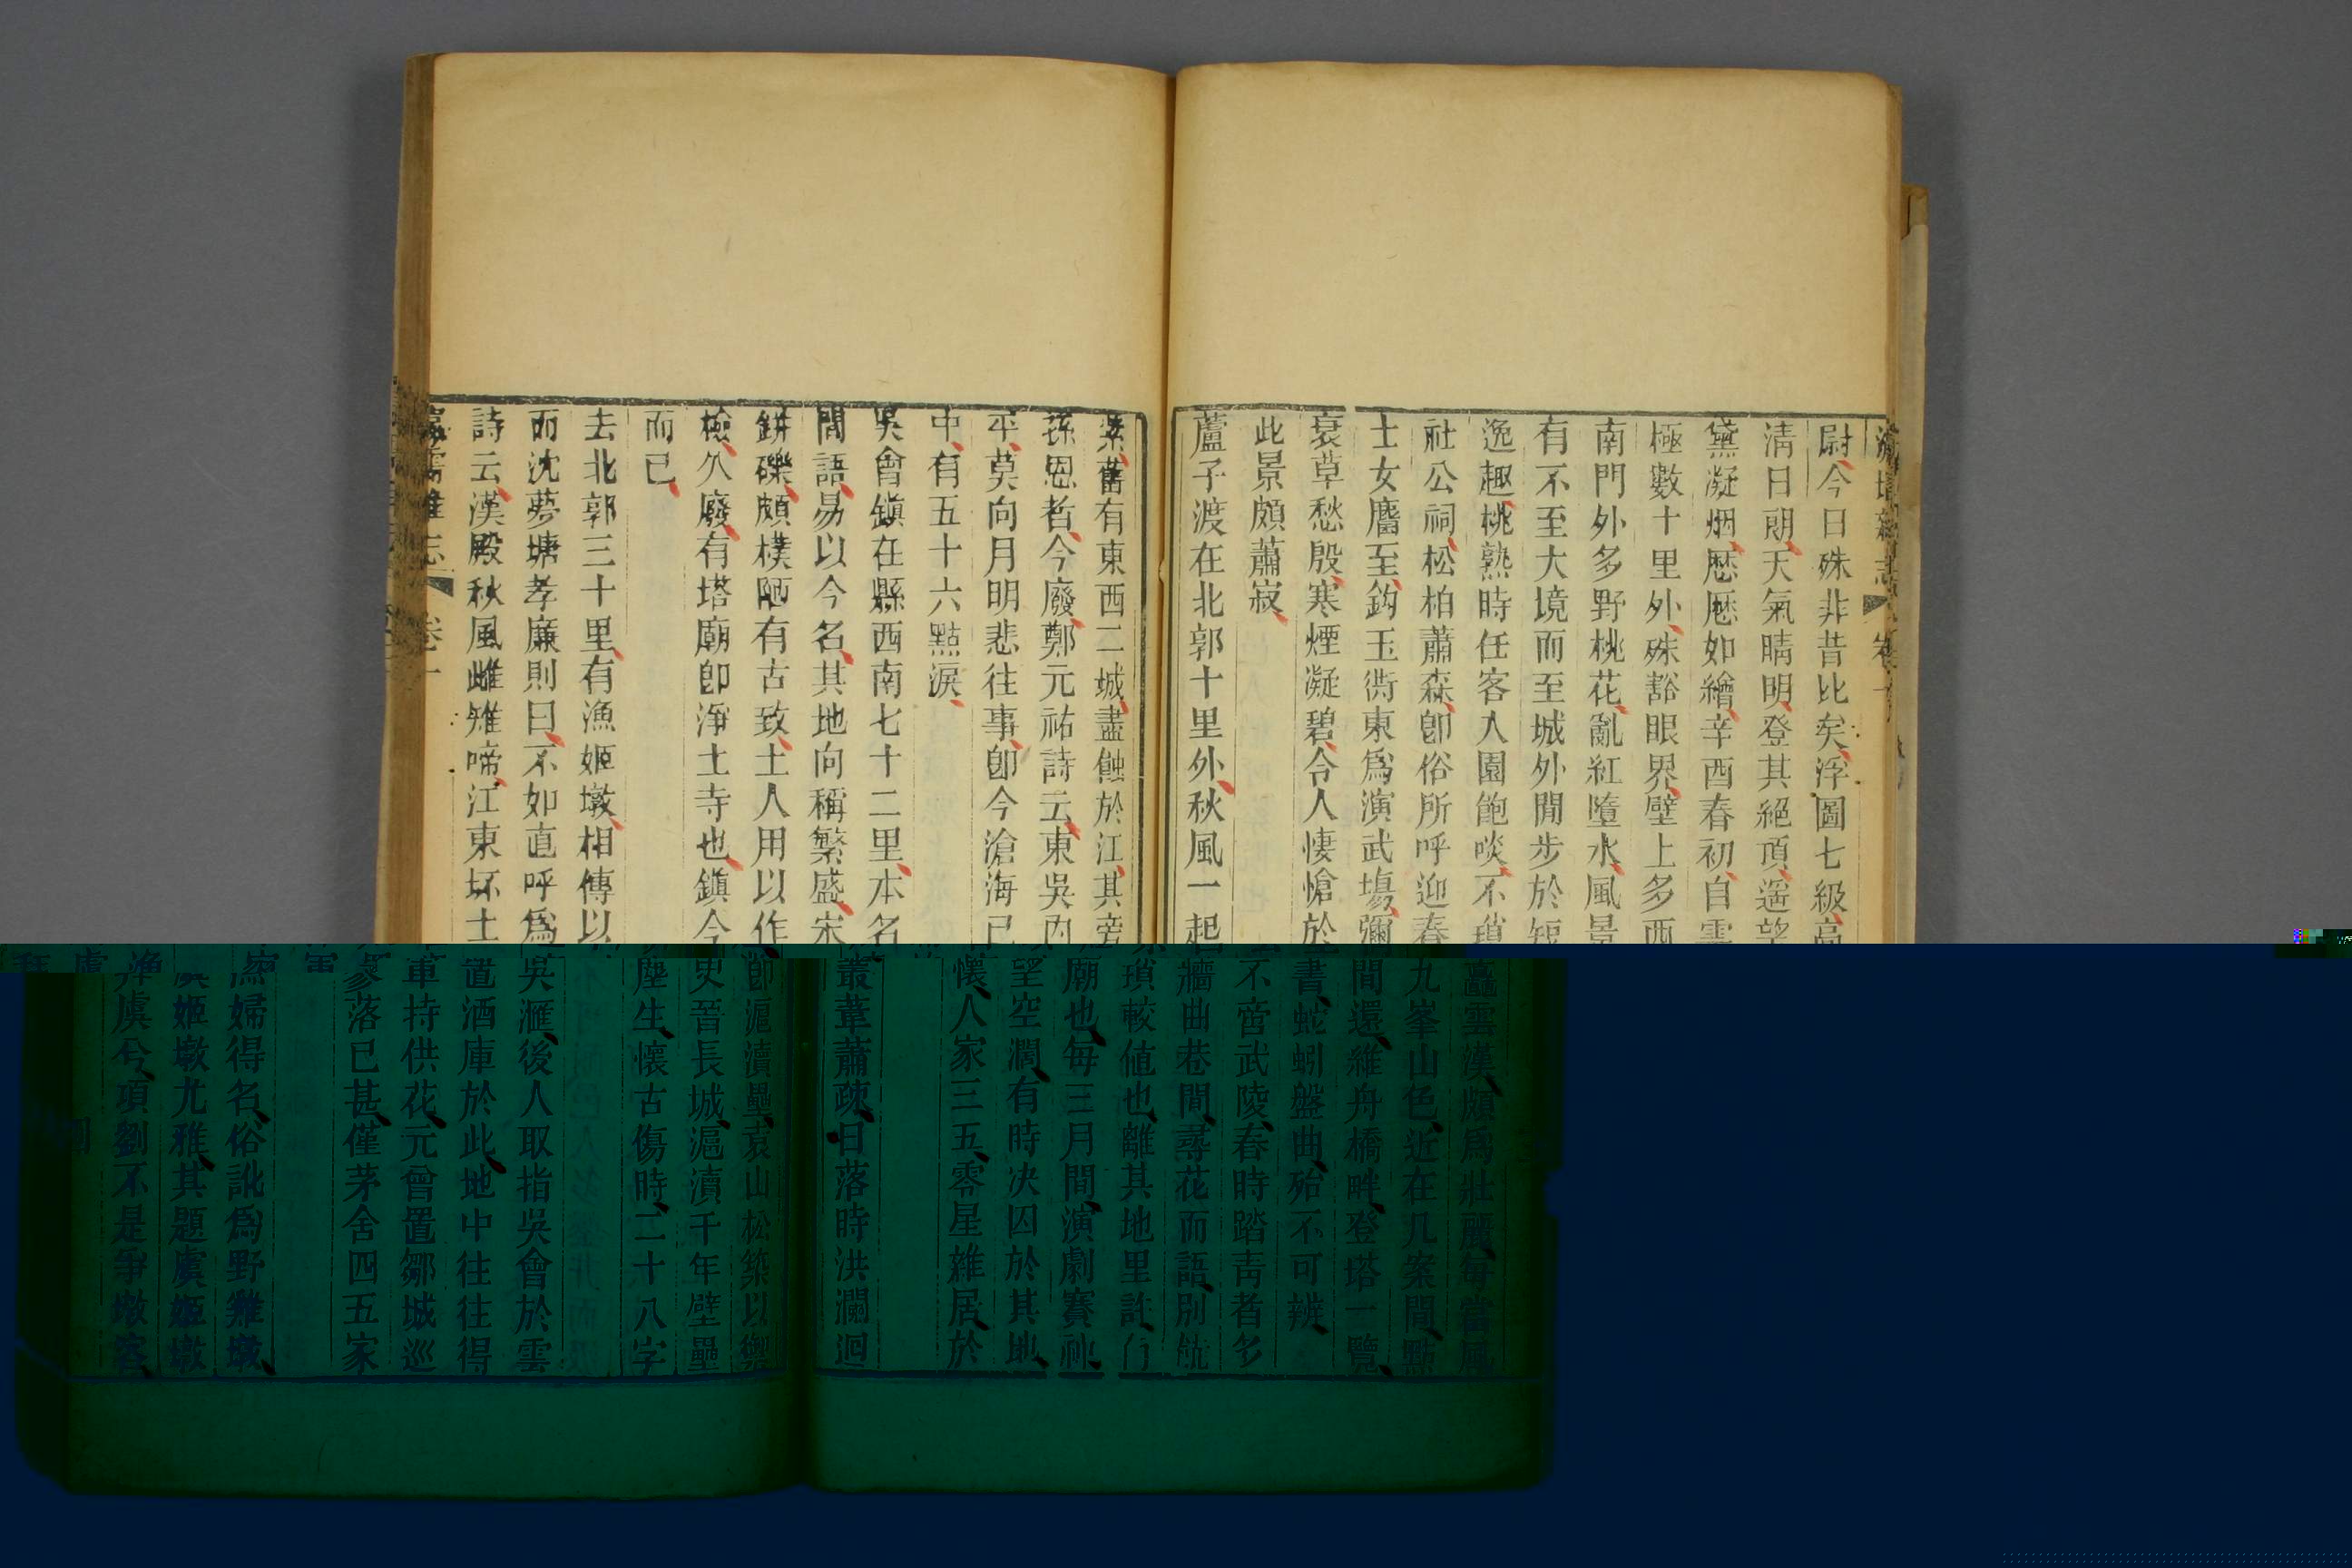 瀛壖雜志 卷一
尉今日殊非昔比矣浮圖七級高矗雲漢頗爲壯麗每當風
清日朗天氣晴明登其絕頂遥望九峯山色近在几案間點
黛凝烟歴歴如繪辛酉春初自雲間還維舟橋畔登塔一覽
極數十里外殊豁眼界壁上多西書蛇蚓盤曲殆不可辨
南門外多野桃花亂紅墮水風景不啻武陵春時踏青者多
有不至大境而至城外閒步於短牆曲巷間尋花而語別饒
逸趣桃熟時任客入園飽啖不瑣瑣較値也離其地里許有
社公祠松柏蕭森卽俗所呼迎春廟也每三月間演劇賽神
士女麕至鈎玉衖東爲演武塲彌望空濶有時决囚於其地
衰草愁殷寒煙凝碧令人悽愴於懷人家三五零星雜居於
此景頗蕭寂
蘆子渡在北郭十里外秋風一起叢葦蕭疎日落時洪瀾迴
縈舊有東西二城盡蝕於江其旁卽滬瀆壘袁山松築以禦
孫恩者今廢鄭元祐詩云東吳内史晉長城滬瀆千年壁壘
平莫向月明悲往事卽今滄海已塵生懷古傷時二十八字
中有五十六點淚
吳會鎮在縣西南七十二里本名吳滙後人取指吳會於雲
間語易以今名其地向稱繁盛宋置酒庫於此地中往往得
缾礫頗樸陋有古致土人用以作軍持供花元曾置鄒城巡
檢久廢有塔廟卽淨土寺也鎮今寥落已甚僅茅舍四五家
而已
去北郭三十里有漁姬墩相傳以漁婦得名俗訛爲野雞墩
而沈夢塘孝廉則曰不如直呼爲虞姬墩尤雅其題虞姬墩
詩云漢殿秋風雌雉啼江東坏土葬虞兮項劉不是爭墩客
瀛壖雜志 卷一